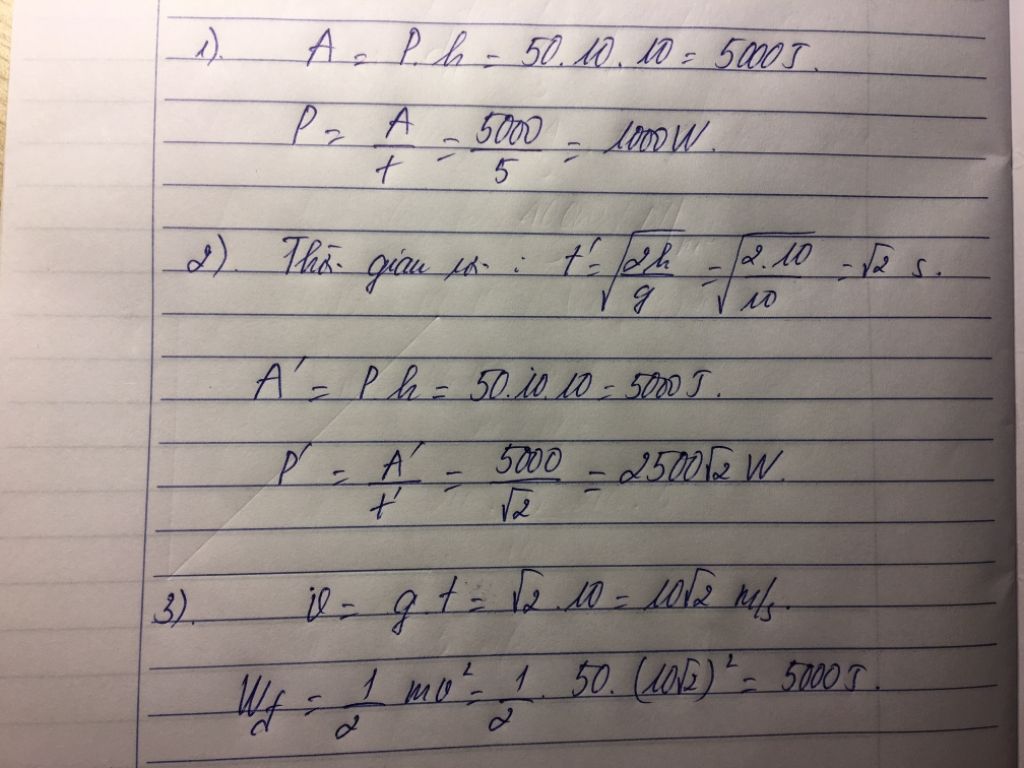 1). A = P.h = 50.10.10 = 5000J.
P = A/t = 5000/5 = 1000W.
2). Thời gian rơi : t' = √(2h/g) = √(2.10/10) = √2 s.
A' = P h = 50.10.10 = 5000J.
P' = A'/t' = 5000/√2 = 2500√2 W.
3). v = g.t = √2.10 = 10√2 m/s.
Wđ = 1/2 mv² = 1/2 . 50. (10√2)² = 5000J.